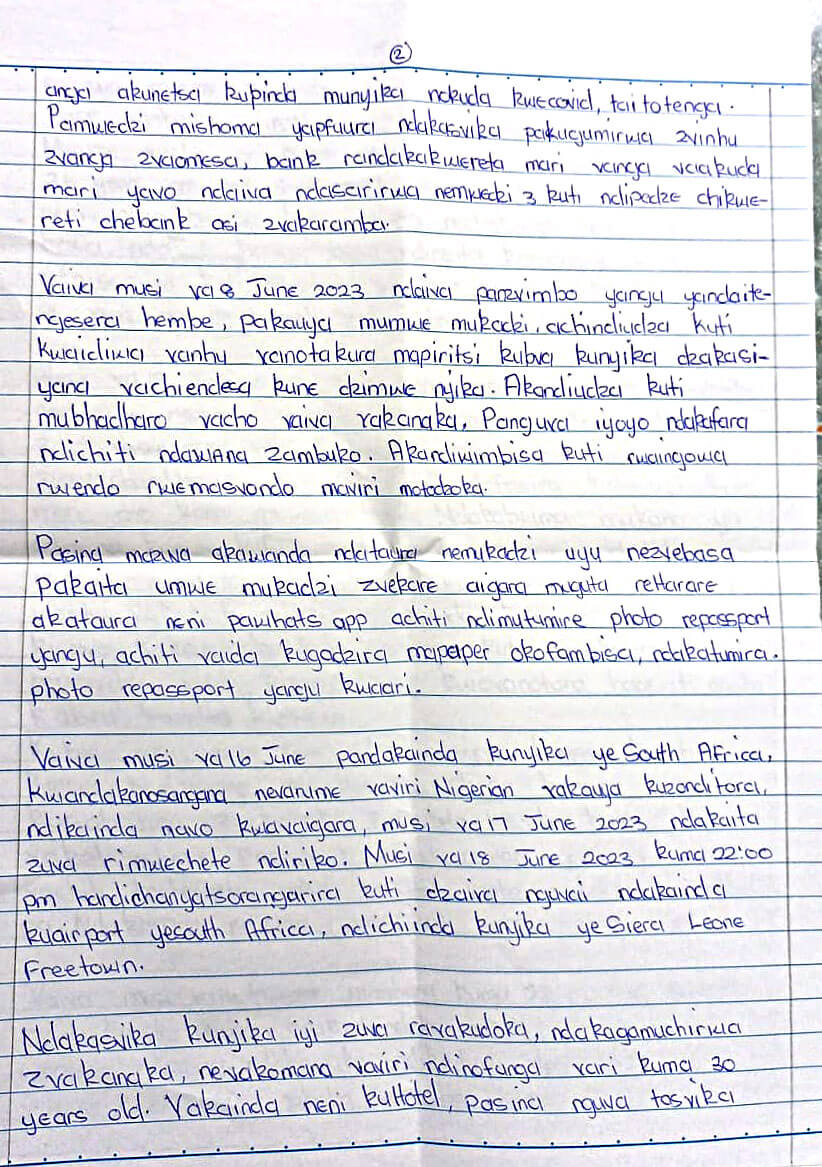 ②
anga akunetsa kupinda munyika nekuda kwecovid, taitotenga.
Pamwedzi mishoma yapfuura ndakasvika pakugumirwa zvinhu
zvanga zvaomesa, bank randakakwereta mari vanga vaakuda
mari yavo ndaiva ndasarirwa nemwedzi 3 kuti ndipedze chikwe-
reti chebank asi zvakaramba.
Vaiva musi va 8 June 2023 ndaiva panzvimbo yangu yandaite-
ngesera hembe, pakauya mumwe mukadzi, achindiudza kuti
Kwaidiwa vanhu vainotakura mapiritsi kubva kunyika dzakasi-
yana vachiendesa kune dzimwe nyika. Akandiudza kuti
mubhadharo vacho vaiva vakanaka, Panguva iyoyo ndakafara
ndichiti ndawana zambuko. Akandivimbisa kuti rwaingowa
rwendo rwemasvondo maviri matadzoka.
Pasina mazuva akawanda ndataura nemukadzi uyu nezvebasa
pakaita umwe mukadzi zvekare aigara muguta reHarare
akataura neni pawhats app achiti ndimutumire photo repassport
yangu, achiti vaida kugadzira mapaper okofambisa, ndakatumira.
photo repassport yangu kwaari.
Vaiva musi va 16 June pandakainda kunyika ye South Africa,
Kwandakanosangana nevanume vaviri Nigerian vakauya kuzonditora,
ndikainda navo kwavaigara, musi va 17 June 2023 ndakaita
zuva rimwechete ndiriko. Musi va 18 June 2023 kuma 22:00
pm handichanyatsorangarira kuti dzaiva nguvai ndakainda
kuairport yesouth Africa, ndichiinda kunyika ye Siera Leone
Freetown.
Ndakasvika kunyika iyi zuva ravakudoka, ndakagamuchirwa
zvakanaka, nevakomana vaviri ndinofunga vari kuma 30
years old. Vakainda neni kuHotel, pasina nguva tasvika